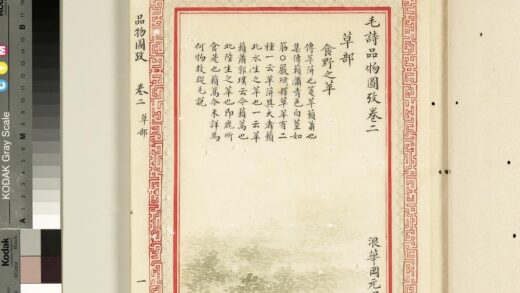 毛詩品物圖攷卷二
草部
食野之苹
傳苹蓱也箋苹藾蕭也
集傳藾蕭青色白莖如
筯○嚴緝釋草苹有二
種一云苹蓱其大者蘋
此水生之苹也一云苹
藾蕭郭璞云今藾蒿也
此陸生之苹也即鹿所
食是也藾蒿今未詳為
何物故從毛說
浪華岡元
品物圖攷 卷二 草部 一
KODAK Gray Scale
C
M
A
M
Kodak